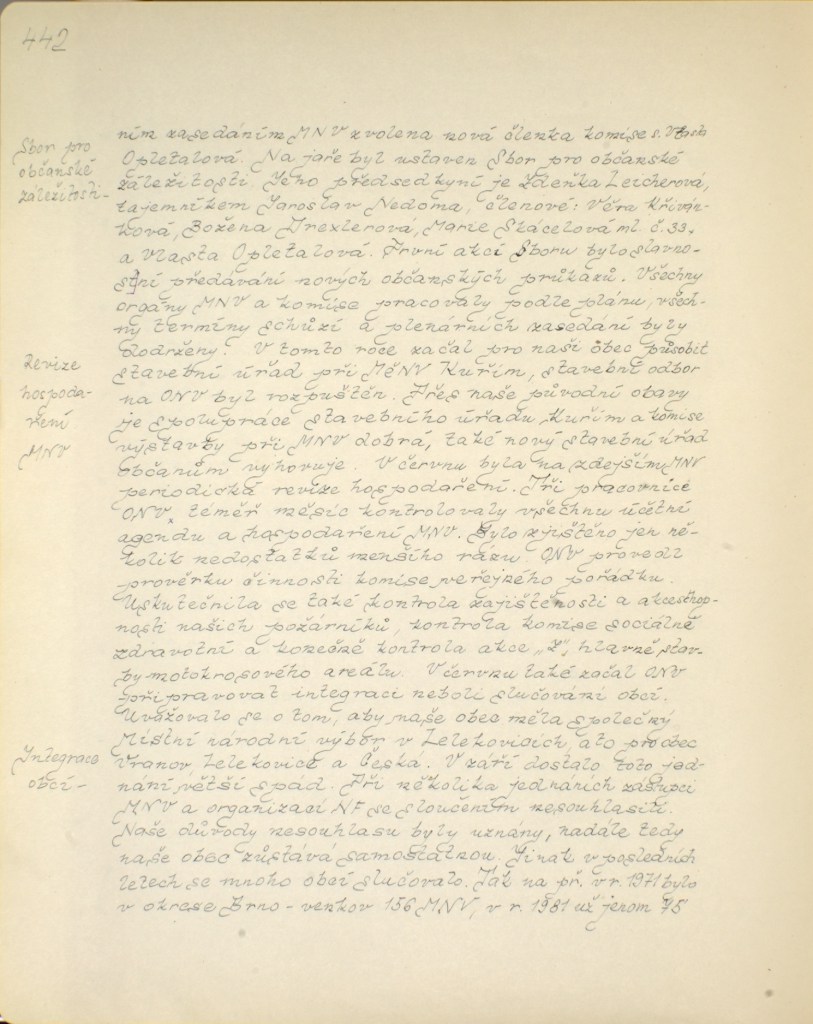 442
Sbor pro
občanské
záležitosti-
ním zasedáním MNV zvolena nová členka komise s. Vlasta
Opletalová. Na jaře byl ustaven Sbor pro občanské
záležitosti. Jeho předsedkyní je Zdeňka Leicherová,
tajemníkem Jaroslav Nedoma, členové: Věra Křiván-
ková, Božena Drexlerová, Marie Skácelová ml. č. 33,
a Vlasta Opletalová. První akcí Sboru bylo slavno-
stní předávání nových občanských průkazů. Všechny
orgány MNV a komise pracovaly podle plánu, všech-
ny termíny schůzí a plenárních zasedání byly
dodrženy. V tomto roce začal pro naši obec působit
stavební úřad při MěNV Kuřim, stavební odbor
na ONV byl rozpuštěn. Přes naše původní obavy
je spolupráce stavebního úřadu Kuřim a komise
výstavby při MNV dobrá, také nový stavební úřad
občanům vyhovuje. V červnu byla na zdejším MNV
periodická revize hospodaření. Tři pracovnice
ONV téměř měsíc kontrolovaly všechnu účetní
agendu a hospodaření MNV. Bylo zjištěno jen ně-
kolik nedostatků menšího rázu. ONV provedl
prověrku činnosti komise veřejného pořádku.
Uskutečnila se také kontrola zajištěnosti a akceschop-
nosti našich požárníků, kontrola komise sociálně
zdravotní a konečně kontrola akce „Z", hlavně stav-
by motokrosového areálu. V červnu také začal ONV
připravovat integraci neboli slučování obcí.
Uvažovalo se o tom, aby naše obec měla společný
Místní národní výbor v Lelekovicích, a to pro obec
Vranov, Lelekovice a Česka. V září dostalo toto jed-
nání větší spád. Při několika jednáních zástupci
MNV a organizací NF se sloučením nesouhlasili.
Naše důvody nesouhlasu byly uznány, nadále tedy
naše obec zůstává samostatnou. Jinak v posledních
letech se mnoho obcí slučovalo. Tak na př. v r. 1971 bylo
v okrese Brno - venkov 156 MNV, v r. 1981 už jenom 75
Revize
hospoda-
ření
MNV
Integrace
obcí -